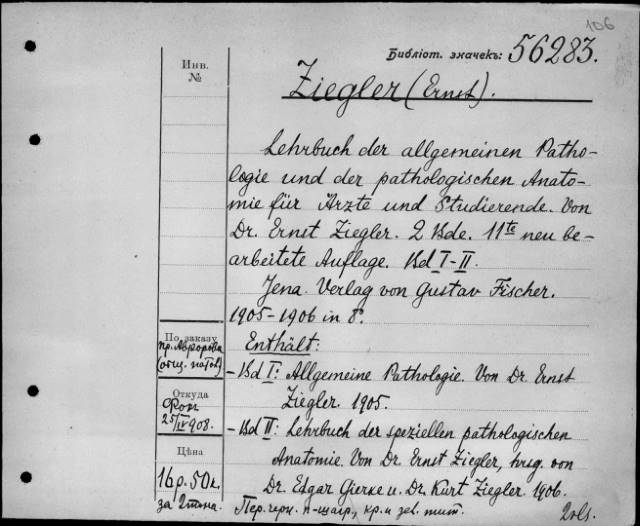 106
Библіот. значекъ: 56283.
Инв.
№
Ziegler (Ernst).
Lehrbuch der allgemeinen Patho-
logie und der pathologischen Anato-
mie für Ärzte und Studierende. Von
Dr. Ernst Ziegler. 2 Bde. 11te neu be-
arbeitete Auflage. Bd I-II.
Jena. Verlag von Gustav Fischer.
1905-1906 in 8°.
Enthält:
- Bd I: Allgemeine Pathologie. Von Dr. Ernst
Ziegler. 1905.
- Bd II: Lehrbuch der speziellen pathologischen
Anatomie. Von Dr. Ernst Ziegler, hrsg. von
Dr. Edgar Gierke u. Dr. Kurt Ziegler. 1906.
По заказу
пр. Аворова
(общ. патол)
Откуда
Фок
25/IV 908.
Цѣна
16р. 50к.
за 2 тома.
Пер. черн. п-шагр, кр. и зел. тит.
2 vls.